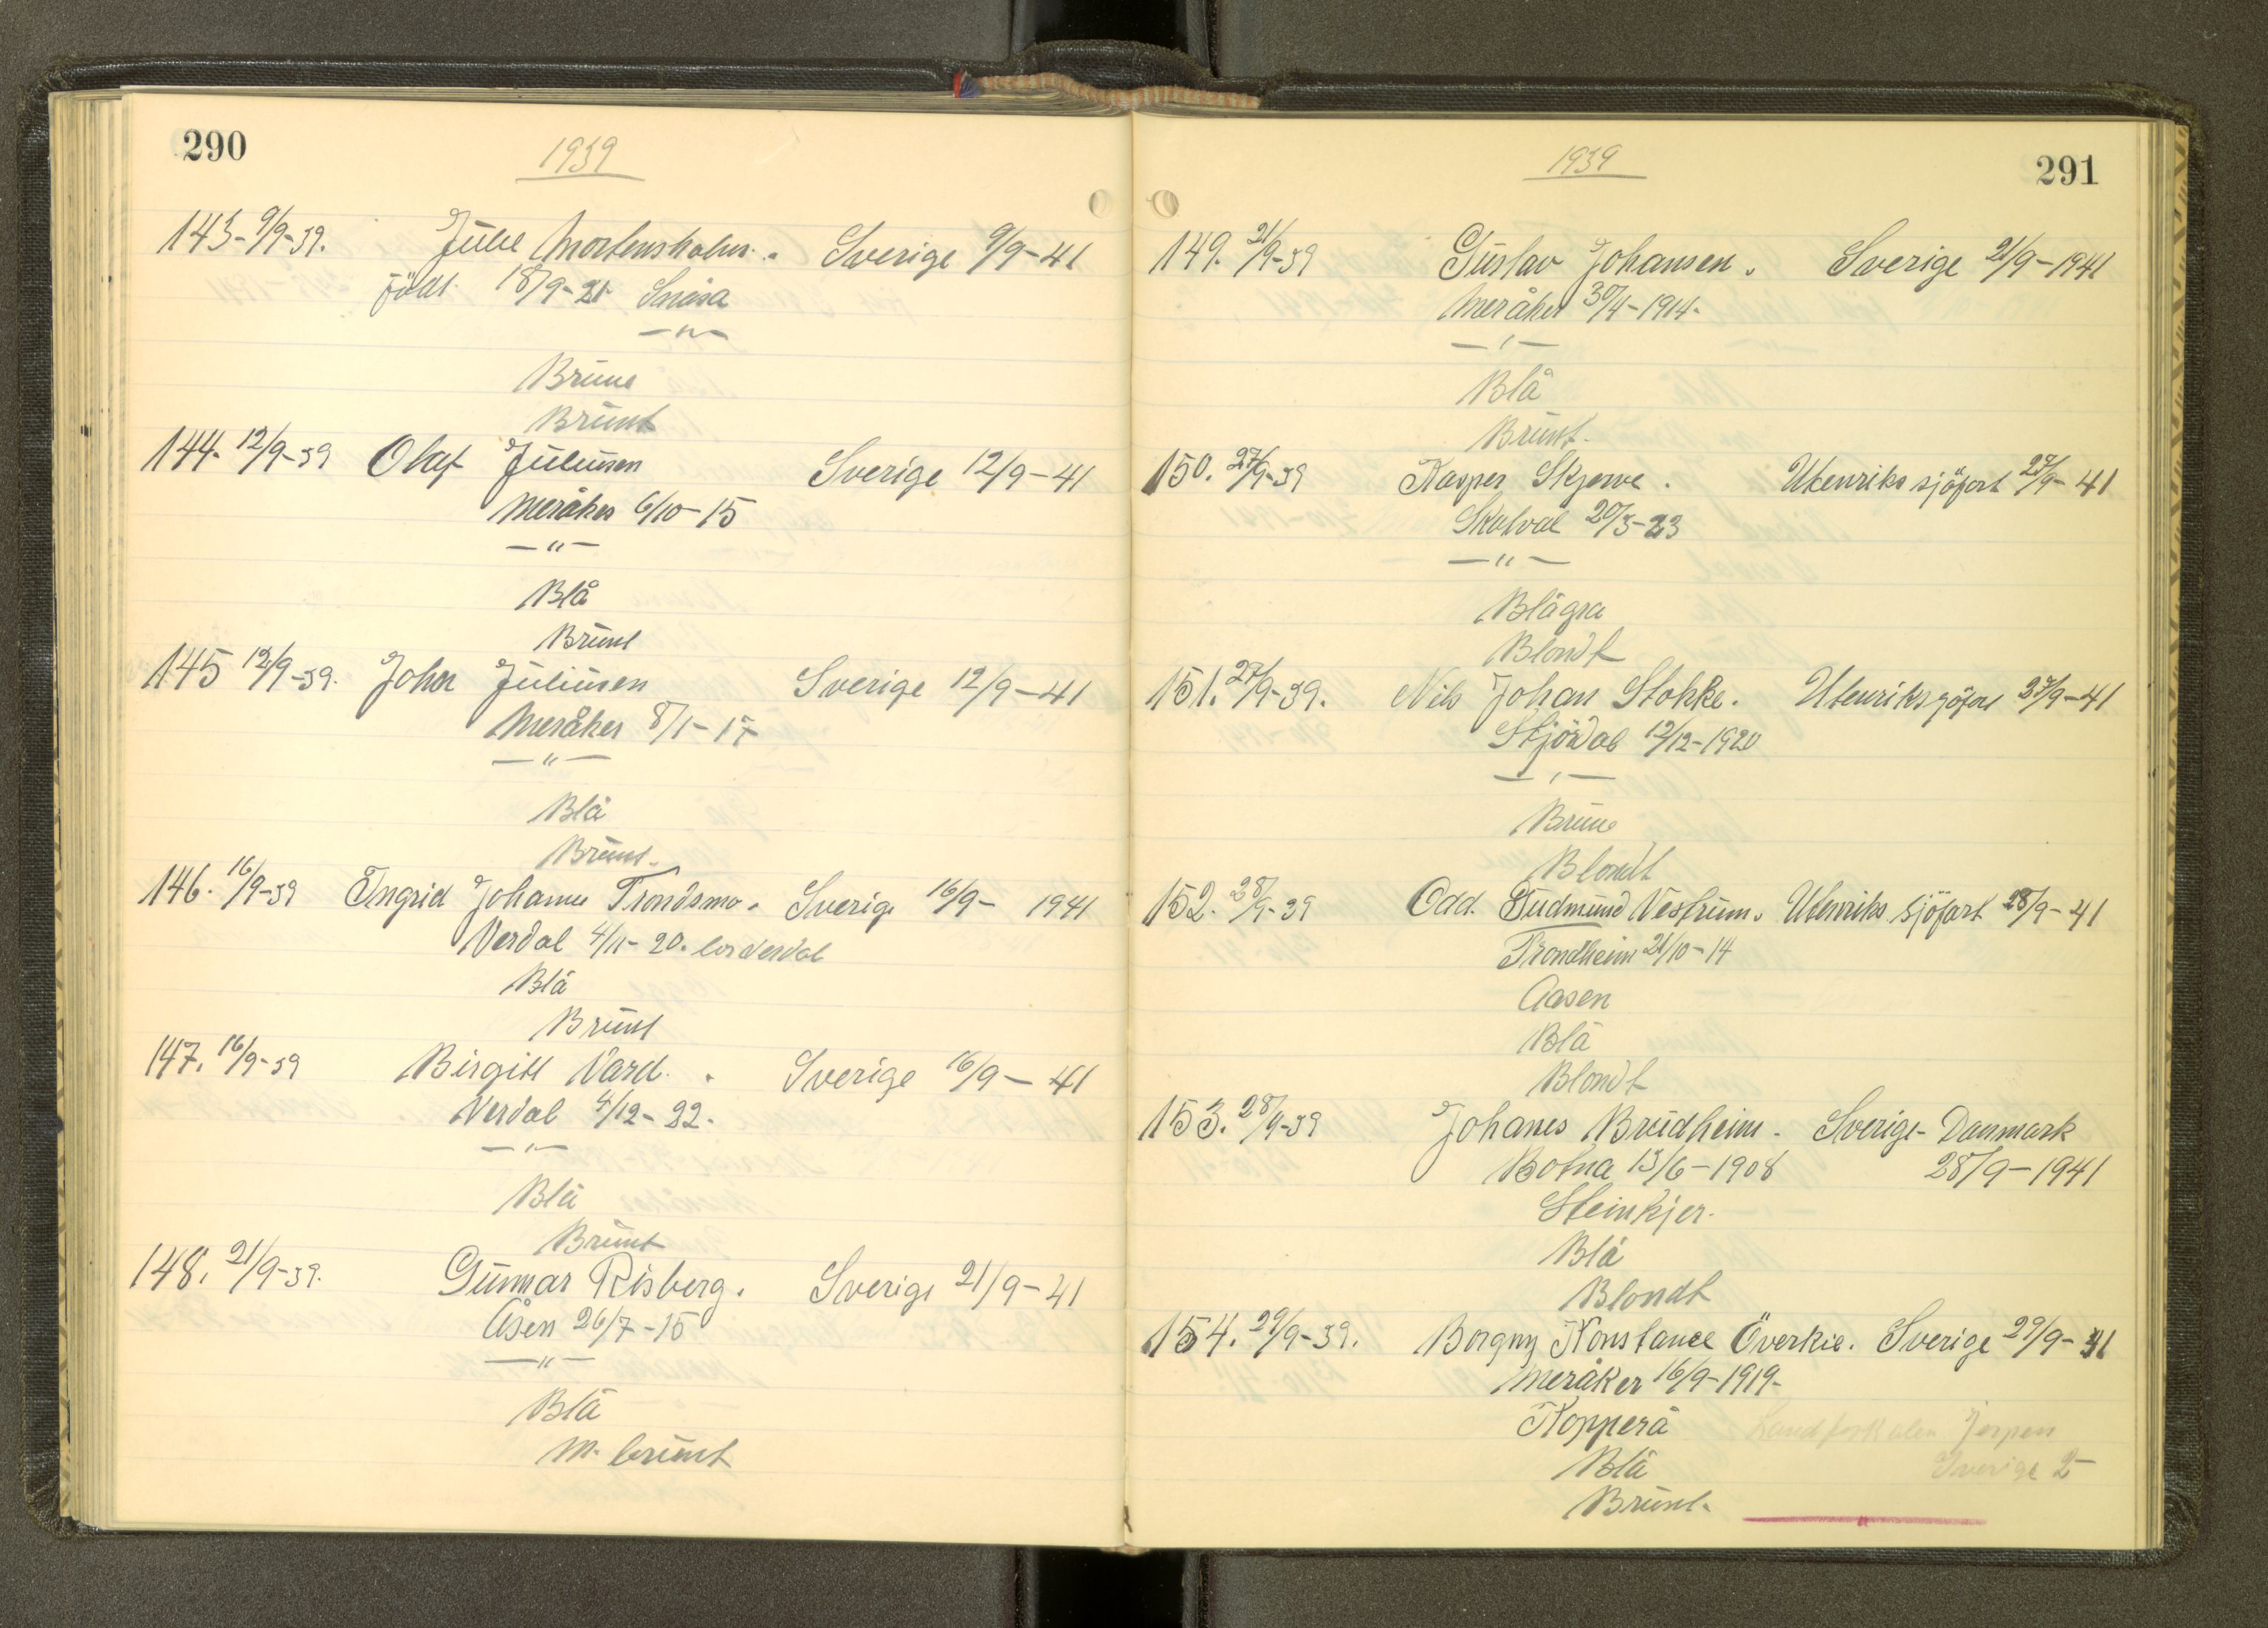 290
1939
143- 9/9-39. Julie Mortensholm. Sverige 9/9-41
Födt. 18/9-21 Snåsa
— " —
Brune
Brunt
144- 12/9-39 Olaf Juliusen Sverige 12/9-41
Meråker 6/10-15
— " —
Blå
Brunt
145 12/9-39. Johan Juliusen Sverige 12/9-41
Meråker 8/1-17
— " —
Blå
Brunt.
146. 16/9-39 Ingrid Johanne Trondsmo. Sverige 16/9- 1941
Verdal 4/11-20. bor Verdal
Blå
Brunt
147. 16/9-39 Birgitt Vard. Sverige 16/9-41
Verdal 4/12-22.
— " —
Blå
Brunt
148. 21/9-39. Gunnar Risberg. Sverige 21/9-41
Åsen 26/7-15
— " —
Blå
M. brunt
1939
291
149. 21/9-39 Gustav Johansen. Sverige 21/9-1941
Meråker 30/4-1914-
— " —
Blå
Brunt.
150. 27/9-39 Kasper Skjerve. Utenriks sjöfart 27/9-41
Skatval 20/3-23
— " —
Blågra
Blondt
151. 27/9-39. Nils Johan Stokke. Utenriks sjöfart 27/9-41
Stjördal 12/12-1920
— " —
Brune
Blondt
152. 28/9-39 Odd. Gudmund Vestrum. Utenriks sjöfart 28/9-41
Trondheim 21/10-14
Aasen
Blå
Blondt
153. 28/9-39 Johanes Brudheim. Sverige-Danmark
Botna 13/6-1908 28/9-1941
Steinkjer.
Blå
Blondt
154. 29/9-39. Borgny Konstance Överkie. Sverige 29/9-41
Meråker 16/9-1919-
Kopperå Landsfiskalen Jerpen
Blå Sverige 2-
Brunt.